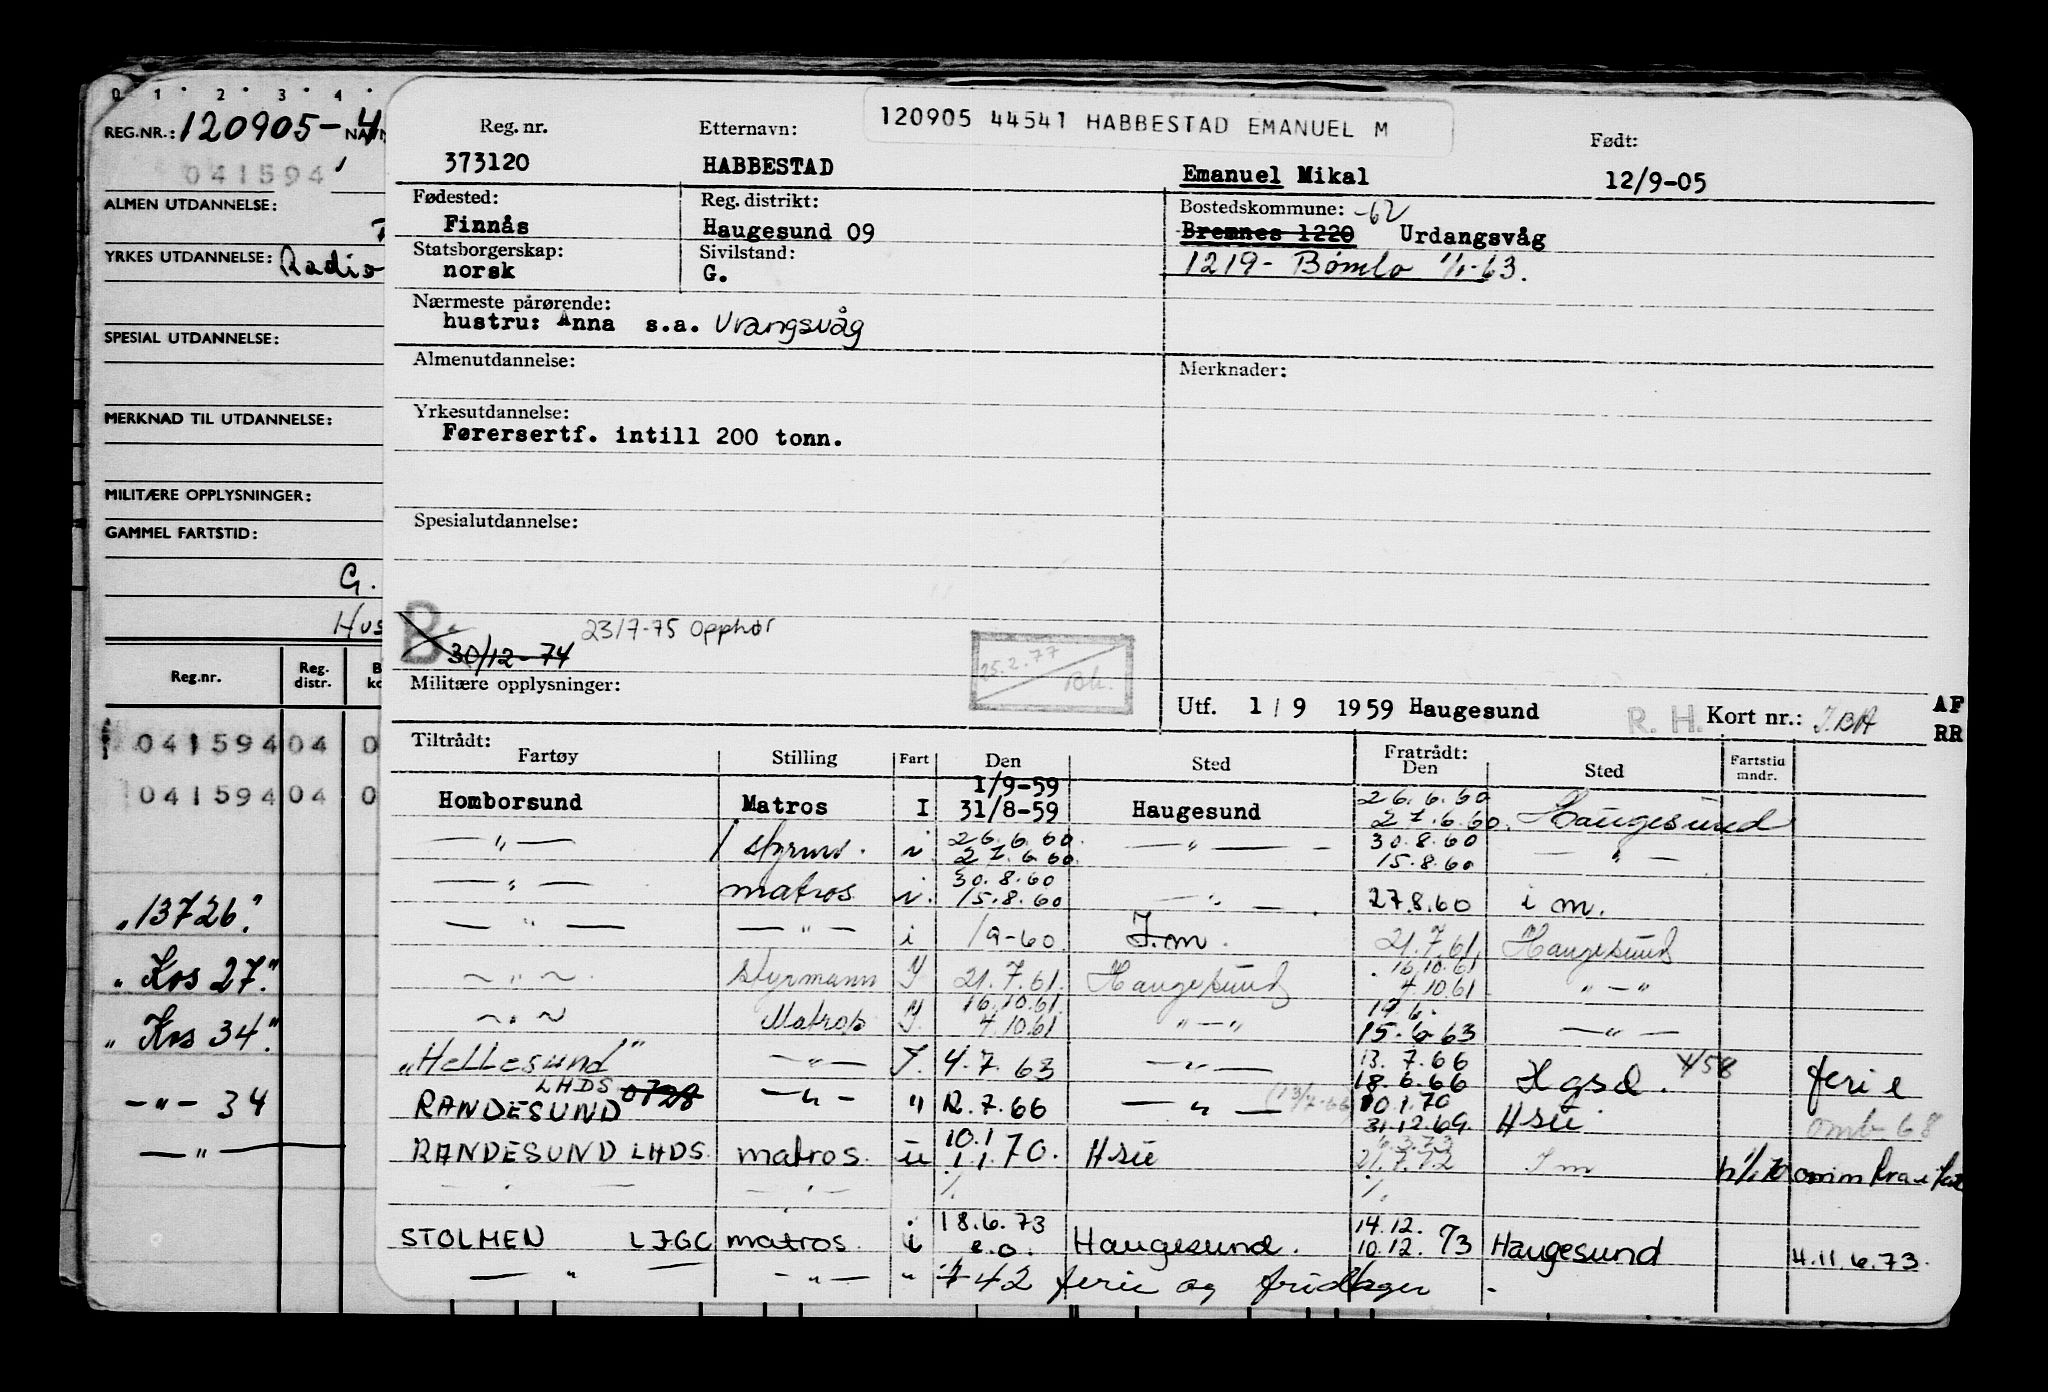 0 1 2 3 4
REG.NR.: 120905-4
041594
ALMEN UTDANNELSE:
YRKES UTDANNELSE: Radio
SPESIAL UTDANNELSE:
MERKNAD TIL UTDANNELSE:
MILITÆRE OPPLYSNINGER:
GAMMEL FARTSTID:
G.
Hus
Reg.nr. Reg. distr.
041594 04 0
041594 04 0
"13726."
"Kvs 27."
"Kvs 34."
-"- 34
-"-
120905 44541 HABBESTAD EMANUEL M
Reg. nr. Etternavn: Født:
373120 HABBESTAD Emanuel Mikal 12/9-05
Fødested: Reg. distrikt: Bostedskommune: -62
Finnås Haugesund 09 Bremnes 1220 Urdangsvåg
Statsborgerskap: Sivilstand: 1219- Bømlo 1/1-63.
norsk G.
Nærmeste pårørende:
hustru: Anna s.a. Vrangsvåg
Almenutdannelse: Merknader:
Yrkesutdannelse:
Førersertf. intill 200 tonn.
Spesialutdannelse:
B 30/12-74 23/7-75 Opphør
25.2.77 Bh.
Militære opplysninger:
Utf. 1/9 1959 Haugesund R. H. Kort nr.: AF
RR
Tiltrådt: Fratrådt:
Fartøy Stilling Fart Den Sted Den Sted Fartstid mndr.
1/9-59
Homborsund Matros I 31/8-59 Haugesund 26.6.60 27.6.60. Haugesund
-"- styrm. i. 26.6.60. 27.6.60. -"- 30.8.60 15.8.60 -"-
-"- matros i. 30.8.60 15.8.60 -"- 27.8.60 i m.
-"- -"- i 1/9-60 I.m. 21.7.61 Haugesund
-"- styrmann I 21.7.61. Haugesund 16.10.61 4.10.61 "-"
-"- Matros I. 16.10.61. 4.10.61 "-" 17.6. 15.6.63 -"-
"Hellesund" -"- I. 4.7.63 -"- 13.7.66 18.6.66 Hgsd. 4/58 ferie
LHDS 0728
RANDESUND -"- " 12.7.66 -"- (13/7-66) 10.1.70 31.12.69. Hsü omb 68
RANDESUND LHDS. matros. ü 10.1 1.1.70. Hsü 6.3.73 21.7.72 I m
-"- -"- %. %.
STOLMEN LJGC matros. i 18.6.73 e.o. Haugesund. 14.12. 10.12.73 Haugesund 4.11.6.73.
-"- -"- " 42 ferie og fridager